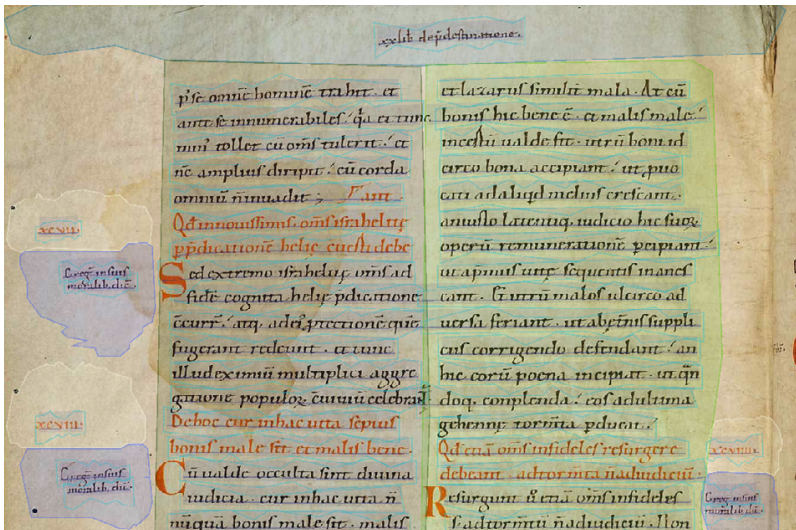 xx lib de p̄destinatione.
p̄ se omnē hominē trahit. et
ante se innumerabiles; q̄a et tunc
nūc tollet cū om̄s tulerit; et
nc̄ amplius diripit; cū corda
omniū n̄ inuadit;
Qd̄ in nouissimis om̄s israhelite
p̄ p̄dicationē helie
xcvii.
Sed extremo israhelite om̄s ad
fidē cognita helie p̄dicatione
c̄currr̄; atq. ad ei' p̄tectionē quē
fugerant redeunt. et tunc
illud eximiū multiplici aggre
gatione populoꝝ c̄uiuiū celebrat̄
Greg' in suis
moralib. dic̄.
De hoc cur in hac uita sepius
bonis male sit et malis bene.
xcviii.
Cū ualde occulta sint diuina
iudicia. cur in hac uita n̄
nūquā bonis male sit. malis
Greg' in suis
moralib. dic̄.
et lazarus similit̄ mala. At cū
bonis hic bene ē. et malis male;
incertū ualde fit. utrū boni id
circo bona accipiant; ut
ad aliqd̄ melius crescant.
an iusto latentiq. iudicio hic suoꝝ
operū remunerationē p̄cipiant;
ut a p̄miis uite sequentis inanes
cant. Et utrū malos idcirco ad
uersa feriant. ut ab et̄nis suppli
ciis corrigendo defendant; an
hic eorū poena incipiat. ut qn̄
doq. conplenda; eos ad ultima
gehenne torm̄ta p̄ducat;
Qd̄ etiā om̄s infideles resurgere
debeant. ad torm̄ta n̄ ad iudiciū.
xcviiii.
Resurgunt ū etiā om̄s infideles
s; ad torm̄tū n̄ ad iudiciū. Non
Greg' in suis
moralib. dic̄.